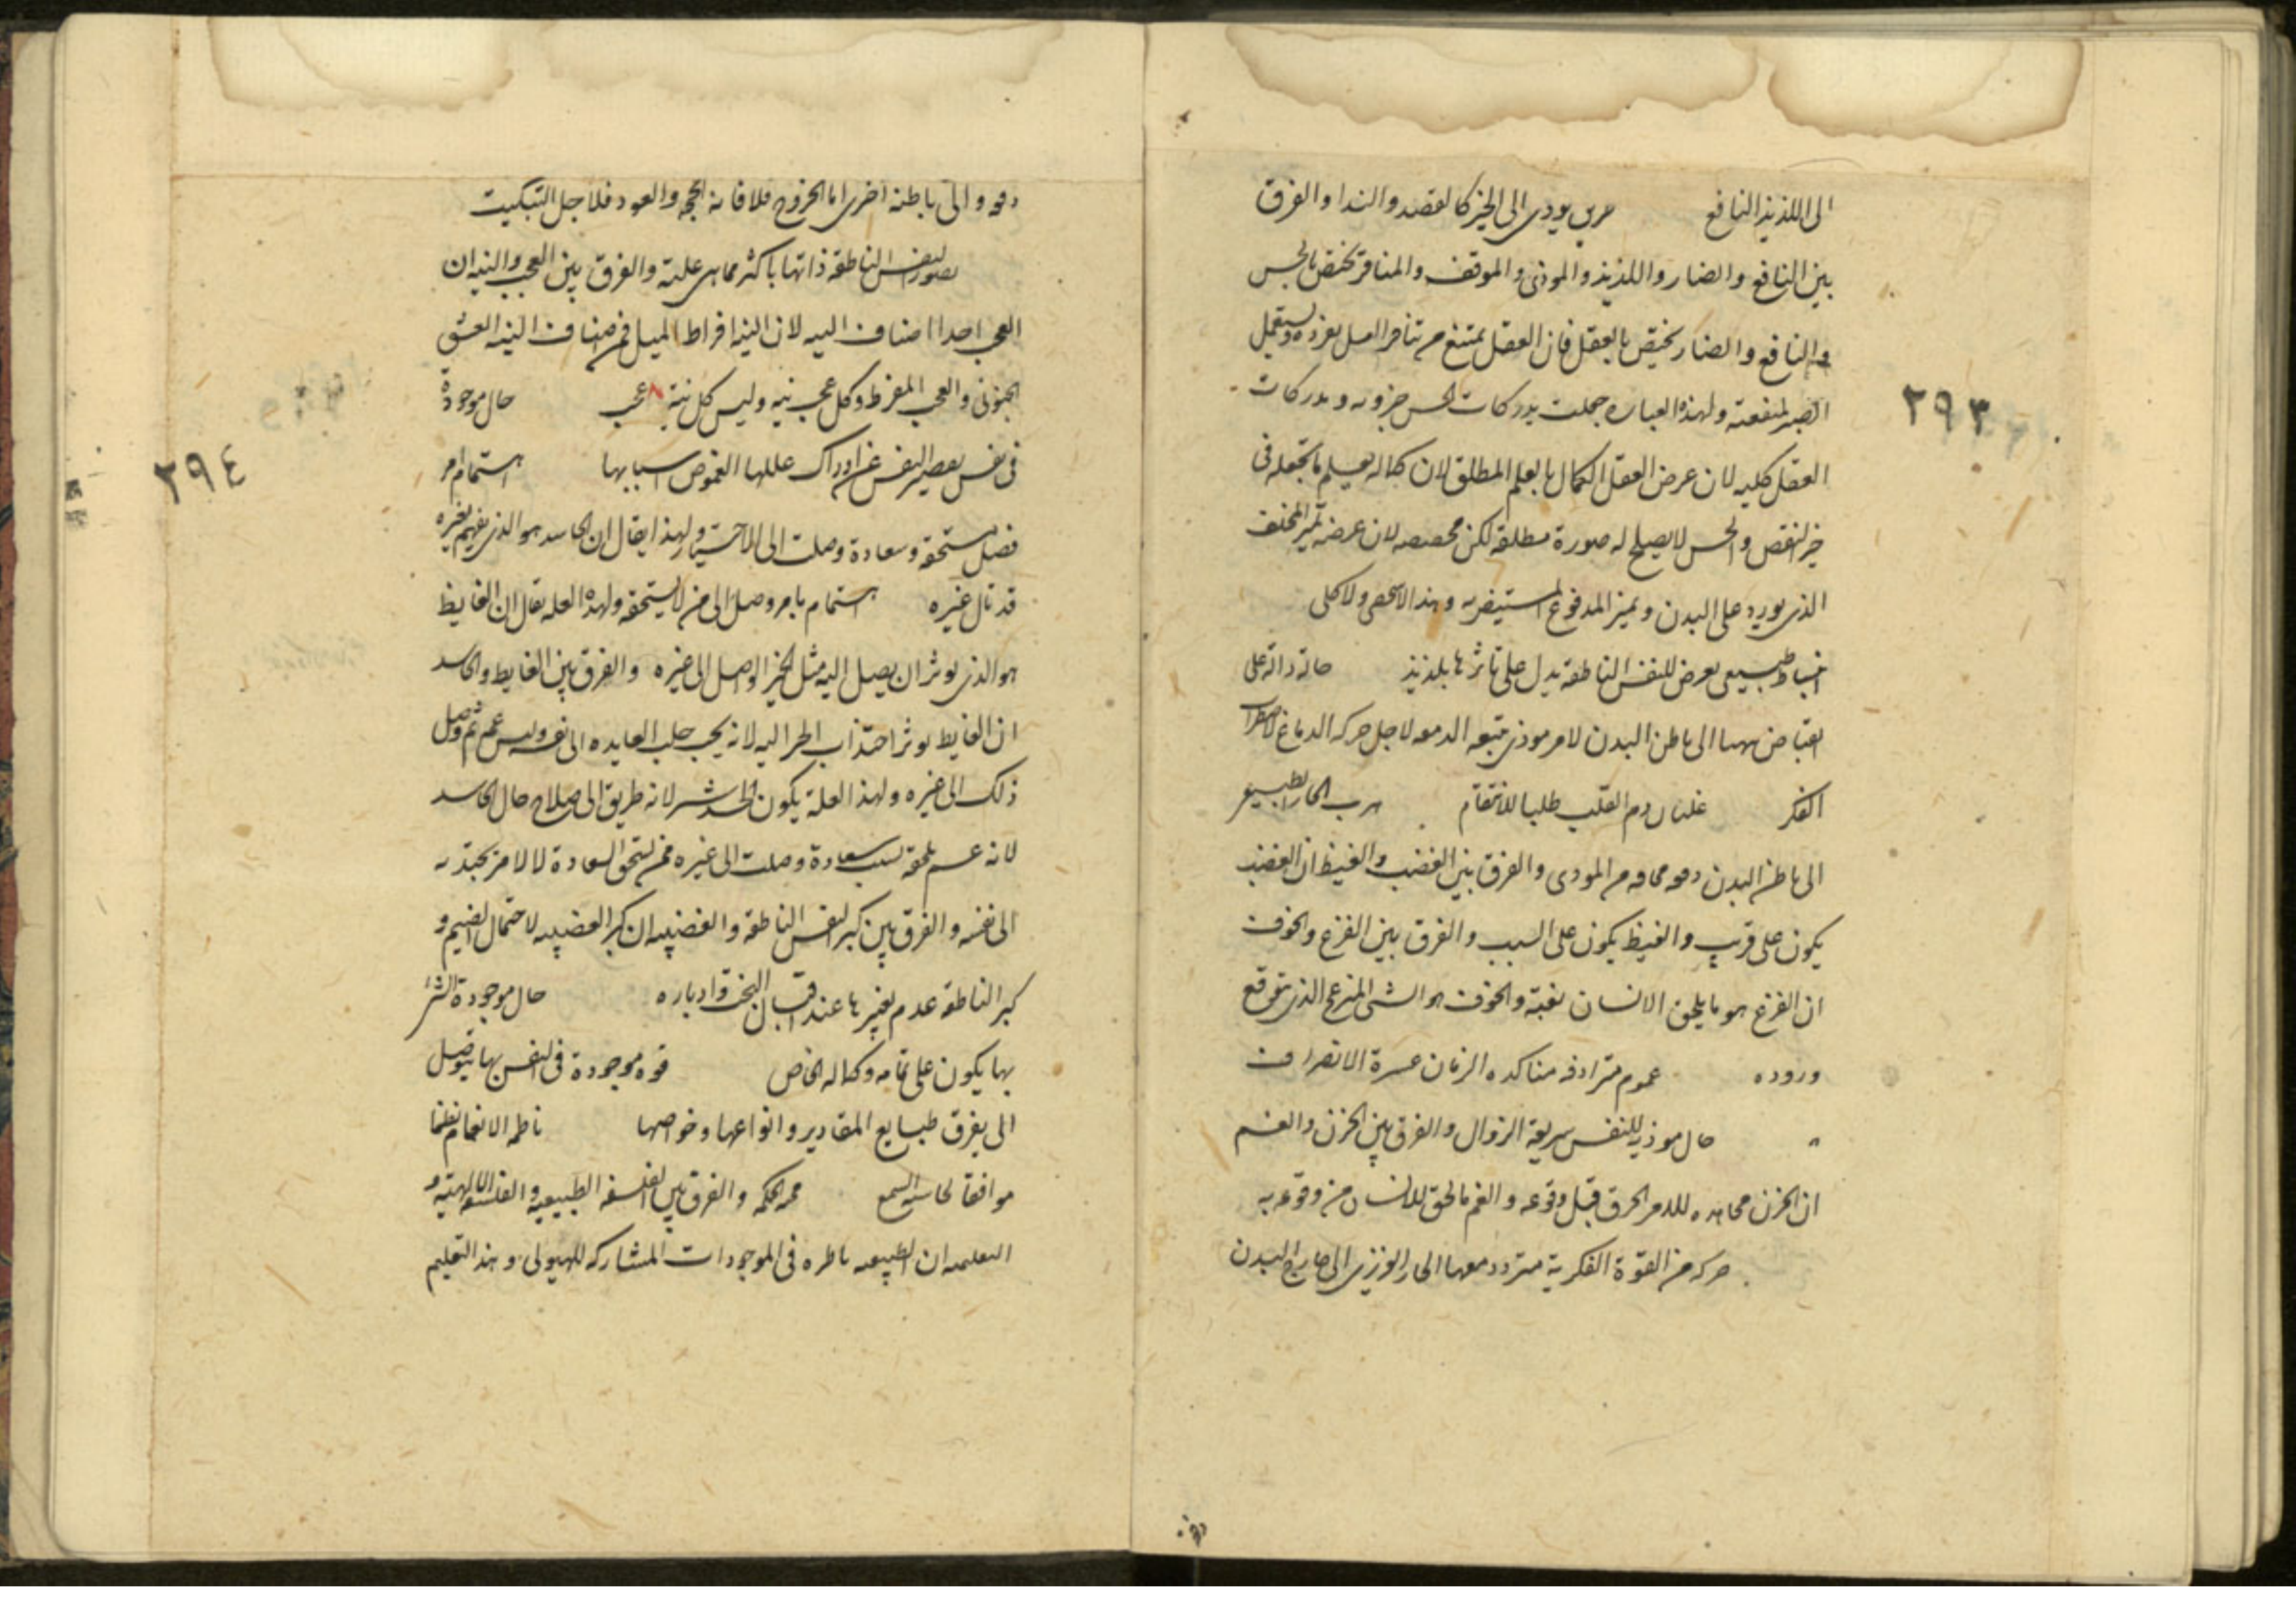 الى اللذيذ النافع يودى الى الخير كالقصد والندا والفرق
بين النافع والضار واللذيذ والموذى والموقف والمنافر تختص بالحس
والنافع والضار يختص بالعقل فان العقل يمتنع من تنافر العسل
الصبر لمنفعته ولهذه العباره جعلت مدركات الحس جزويه ومدركات
٢٩٣
العقل كليه لان عرض العقل الكمال بالعلم المطلق لان كماله بعلم ما تجعله فى
حيز النقص والحس لا يصلح له صورة مطلقه لكن مخصصه لان عرضه تميز المختلف
الذى يورد على البدن وتميز المدفوع وهذا لا كلى
انبساط طبيعى يعرض للنفس الناطقه يدل على تاثرها بلذيذ حالة دالة على
انقباض الى باطن البدن لامر موذى تتبعه الدمعه لاجل حركه الدماغ لاضطراب
الفكر غليان دم القلب طلبا للانتقام هرب الحار الطبيعى
الى باطن البدن دفعه مخافه من الموذى والفرق بين الغضب والغيظ ان الغضب
يكون على قريب والغيظ يكون على السبب والفرق بين الفزع والخوف
ان الفزع هو ما يلحق الانسان بغتة والخوف هو الشى المزعج الذى يتوقع
وروده غموم مترادفه مناكده الزمان عسرة الانصراف
حال موذيه للنفس سريعة الزوال والفرق بين الحزن والغم
ان الحزن قبل وقوعه والغم ما لحق للانسان من وقوعه به
حركه من القوة الفكرية متردد معها الحار الغزيزى الى خارج البدن
دفعه والى باطنه اخرى اما الخروج والعود فلاجل التبكيت
تصور النفس الناطقه ذاتها باكثر مما هى عليه والفرق بين العجب والتيه ان
العجب احد اصناف التيه لان التيه افراط الميل فمن اصناف التيه العشق
الجنونى والعجب المفرط وكل عجب تيه وليس كل تيه عجب حال موجودة
فى نفس يعصر النفس عن ادراك عللها لغموض اسبابها اهتمام امر
٢٩٤
فضل مستحقه وسعادة وصلت الى الاختيار ولهذا يقال ان الحاسد هو الذى يغتم بخير
قد نال غيره اهتمام بامر وصل الى من لا يستحقه ولهذه العله يقال ان الغايظ
هو الذى يوثر ان يصل اليه مثل الخير الواصل الى غيره والفرق بين الغايظ والحاسد
ان الغايظ يوثر اجتذاب الخير اليه لانه يحب جلب الفايده الى نفسه وليس
ذلك الى غيره ولهذا العلة يكون الحسد شر لانه طريق الى صلاح حال الحاسد
لانه غم يلحقه بسبب سعادة وصلت الى غيره ممن يستحق السعادة لا لامر يجتذبه
الى نفسه والفرق بين كبر النفس الناطقه والغضبيه ان كبر الغضبيه لاحتمال الضيم و
كبر الناطقه عدم تغيرها عند اقبال البخت وادباره حال موجودة الشى
بها يكون على تمامه وكماله الخاص قوه موجودة فى النفس بها يتوصل
الى يفرق طبايع المقادير وانواعها وخواصها ناظمه الانغام نظما
موافقا لحاسة السمع محبه الحكمه والفرق بين الفلسفه الطبيعيه والفلسفه الالهيه و
التعلميه ان الطبيعه ناظره فى الموجودات المشاركه للهيولى وهذا التعليم